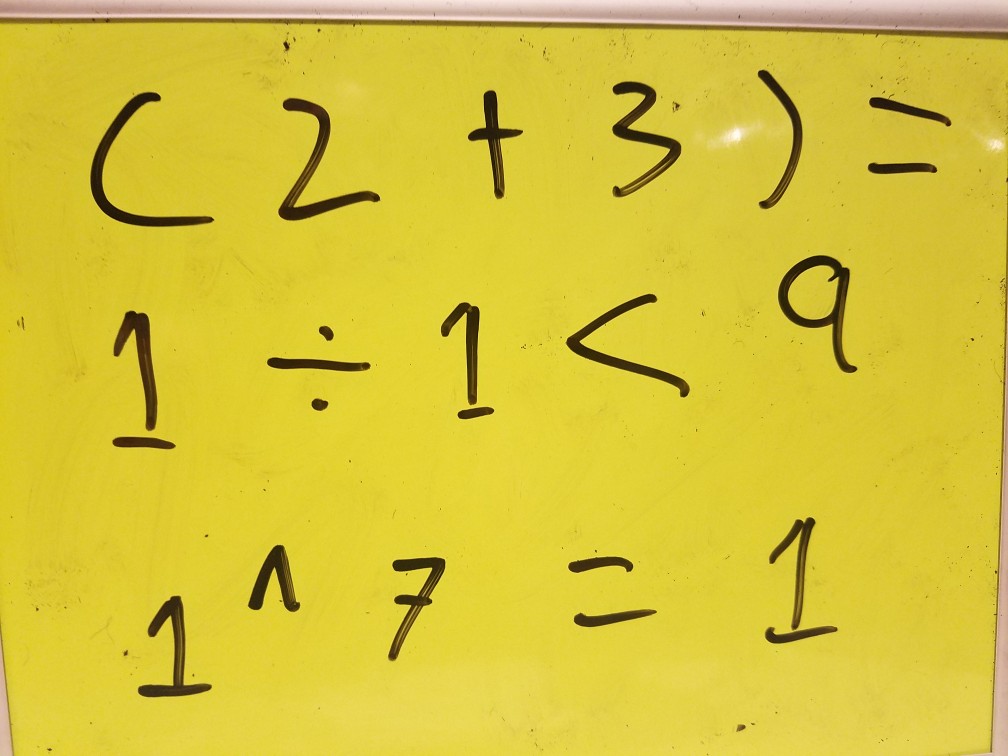 ( 2 + 3 ) =
1 ÷ 1 < 9
1 ^ 7 = 1